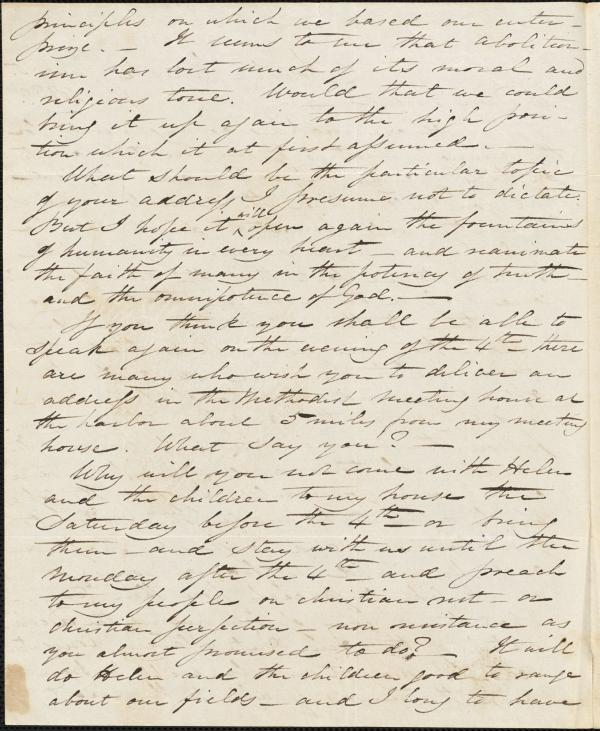 principles on which we based our enter-
prize. — It seems to me that abolition-
ism has lost much of its moral and
religious tone. Would that we could
bring it up again to the high posi-
tion which it at first assumed. —
What should be the particular topic
of your address, I presume not to dictate.
But I hope it will open again the fountains
of humanity in every heart — and reanimate
the faith of many in the potency of truth —
and the omnipotence of God. —
If you think you shall be able to
speak again on the evening of the 4th — there
are many who wish you to deliver an
address in the Methodist meeting house at
the harbor about 5 miles from my meeting
house. What say you? —
Why will you not come with Helen
and the children to my house the
Saturday before the 4th — or bring
them — and stay with us until the
Monday after the 4th — and preach
to my people on christian rest — or
christian perfection — non resistance as
you almost promised to do? — It will
do Helen and the children good to range
about our fields — and I long to have